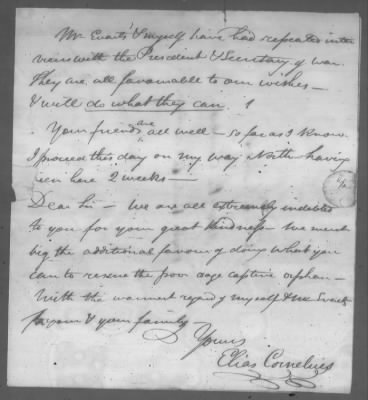 Mr Evarts & myself have had repeated inter
views with the President & Secretary of War.
They are all favourable to our wishes —
& will do what they can.
Your friends are all well — so far as I know.
I proceed this day on my way North having
been here 2 weeks —
Dear Sir — We are all extremely indebted
to you for your great kindness — We must
beg the additional favour of doing what you
can to rescue the poor osage captive orphan —
With the warmest regard of myself & Mr Evarts
for you & your family —
Yours
Elias Cornelius